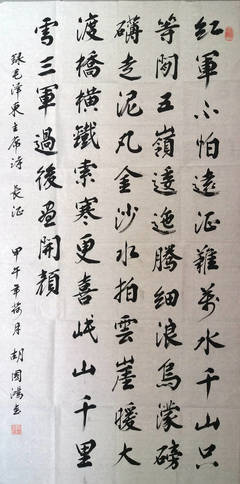 紅軍不怕遠征難萬水千山只
等閒五嶺逶迤騰細浪烏濛磅
礴走泥丸金沙水拍雲崖暖大
渡橋橫鐵索寒更喜岷山千里
雪三軍過後盡開顏
毛泽東主席诗 長征 甲午年荷月 胡国鴻